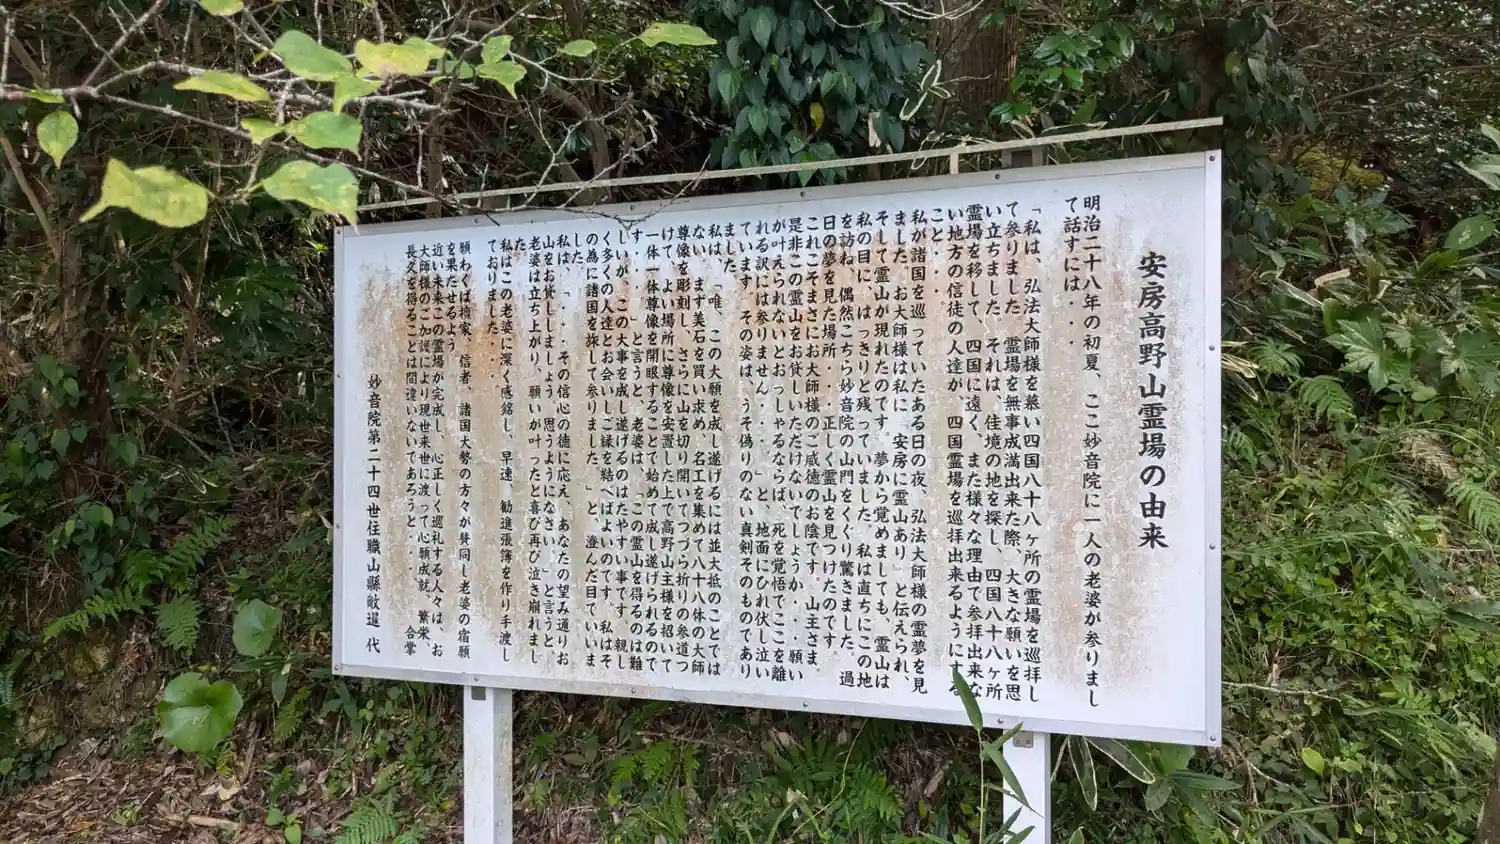 安房高野山霊場の由来
明治二十八年の初夏、ここ妙音院に一人の老婆が参りまし
て話すには・・
「私は、弘法大師様を慕い四国八十八ヶ所の霊場を巡拝し
て参りました。霊場を無事成満出来た際、大きな願いを思
い立ちました。それは、佳境の地を探し、四国八十八ヶ所
霊場を移して、四国に遠く、また様々な理由で参拝出来な
い地方の信徒の人達が、四国霊場を巡拝出来るようにする
こと・・
私が諸国を巡っていたある日の夜、弘法大師様の霊夢を見
ました。お大師様は私に『安房に霊山あり』と伝えられ、
そして霊山が現れたのです。夢から覚めましても、霊山は
私の目に、はっきりと残っていました。私は直ちにこの地
を訪ね、偶然こちら妙音院の山門をくぐり驚きました。過
日の夢を見た場所・・・正しく霊山を見つけたのです。
これこそまさにお大師様のご威徳のお陰です。山主さま。
是非この霊山をお貸しいただけないでしょうか・・・願い
が叶えられないとおっしゃるならば、死を覚悟でここを離
れる訳には参りません・・・」と、地面にひれ伏し泣い
ています。その姿は、うそ偽りのない真剣そのものであり
ました。
私は、「唯、この大願を成し遂げるには並大抵のことでは
ない。まず美石を買い求め、名工を集めて八十八体の大師
尊像を彫刻し、さらに山を切り開いてつづら折りの参道つ
けて、よい場所に尊像を安置した上で高野山主様を招いて
一体一体尊像を開眼することで始めて成し遂げられるので
す・・・」と言うと、老婆は、「この霊山を得るのは難
しいが、この大事を成し遂げるのはたやすい事です。親し
く多くの人達とお会いしご縁を結べばよいのです。私はそ
の為に諸国を旅して参りました。」と、澄んだ目でいいま
した。
私は、「・・・その信心の徳に応え、あなたの望み通りお
山をお貸ししましょう。思うようになさい。」と言うと
老婆は立ち上がり、願いが叶ったと喜び再び泣き崩れまし
た。
私はこの老婆に深く感銘し、早速、勧進張簿を作り手渡し
ておりました・・
願わくば檀家、信者、諸国大勢の方々が賛同し老婆の宿願
を果たせるよう
近い未来この霊場が完成し、心正しく巡礼する人々は、お
大師様のご加護により現世来世に渡って心願成就、繁栄、
長久を得ることは間違いないであろうと・・・　合掌
妙音院第二十四世住職山縣敞暹　代